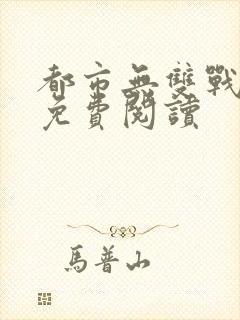 都市無雙戰
免費閱讀
馬普山